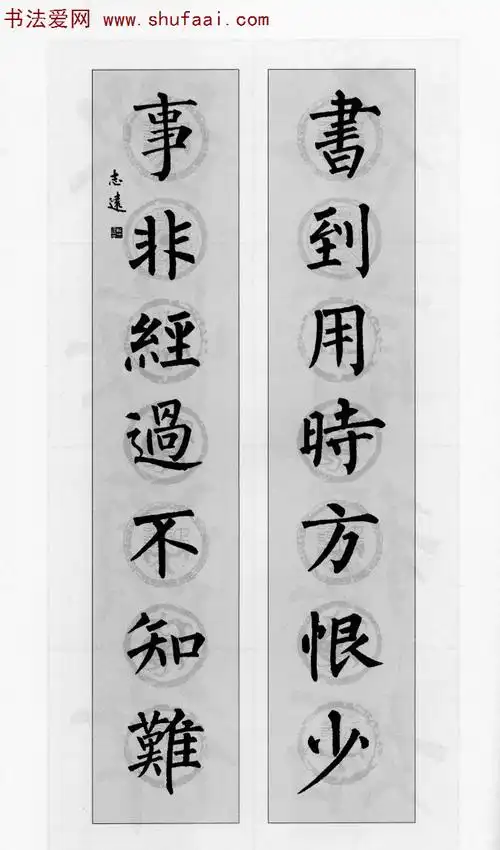 书法爱网 www.shufaai.com
書到用時方恨少
事非經過不知難
志遠